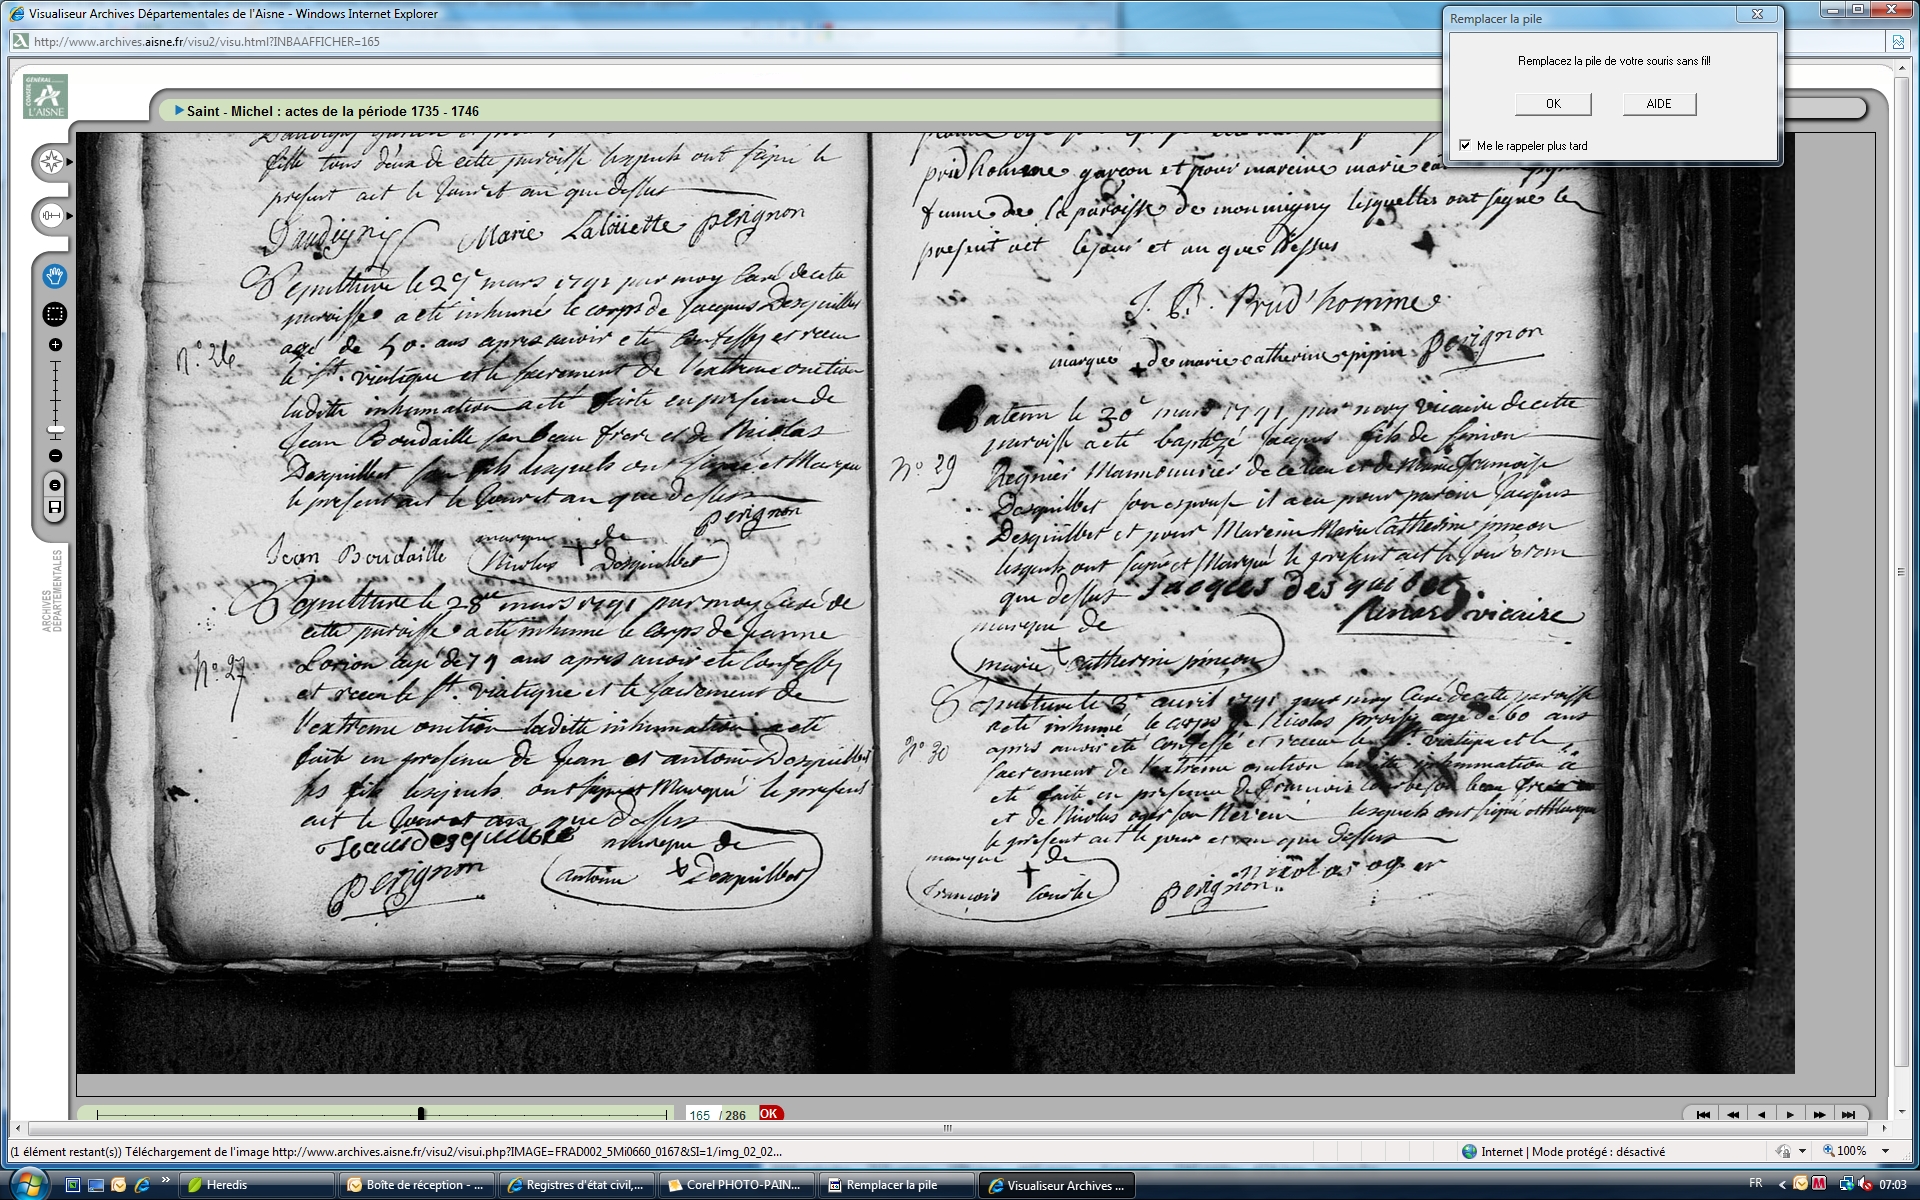 Visualiseur Archives Départementales de l'Aisne - Windows Internet Explorer
http://www.archives.aisne.fr/visu2/visu.html?INBAAFFICHER=165
Remplacer la pile
Remplacez la pile de votre souris sans fil!
OK
AIDE
Me le rappeler plus tard
CONSEIL GÉNÉRAL
L'AISNE
Saint - Michel : actes de la période 1735 - 1746
ARCHIVES
DÉPARTEMENTALES
fille tous deux de cette paroisse lesquels ont signé le
present act le jour et an que dessus
Daudigny Marie Laloüette perignon
Sepulture le 29e mars 1791 par moy Curé de cette
paroisse a eté inhumé le corps de Jacques Desquilbet
agé de 50 ans apres avoir eté Confessé et receu
n° 26
le St. viatique et le sacrement de l'extreme onction
ladite inhumation a eté faite en presence de
Jean Boudaille son beau frere et de Nicolas
Desquilbet son fils lesquels ont signé et Marqué
le present act le jour et an que dessus
perignon
Jean Boudaille
marque de
Nicolas Desquilbet
Sepulture le 28me mars 1791 par moy Curé de
cette paroisse a eté inhumé le corps de Jeanne
n° 27
Lorion agé de 79 ans apres avoir eté Confessé
et receu le St. viatique et le sacrement de
l'extreme onction ladite inhumation a eté
faite en presence de Jean et antoine Desquilbet
ses fils lesquels ont signé et Marqué le present
act le jour et an que dessus
marque de
antoine Desquilbet
perignon
prudhomme garçon et pour mareine marie
femme de la paroisse de monmigny lesquelles ont signé le
present act le jour et an que dessus
J. B. Prud'homme
marque de marie catherine pipin perignon
Batem le 30e mars 1791 par moy vicaire de cette
paroisse a eté baptizé Jacques fils de Simon
n° 29
Regnier Manouvrier de ce lieu et de Marie françoise
Desquilbet son epouse il a eu pour parein Jacques
Desquilbet et pour Mareine Marie Catherine pineau
lesquels ont signé et Marqué le present act le jour et an
que dessus Jacques desquilbet
Renard vicaire
marque de
marie catherine pineau
Sepulture le 3e avril 1791 par moy Curé de cette paroisse
a eté inhumé le corps de Nicolas agé de 60 ans
n° 30
apres avoir eté Confessé et receu le St. viatique et le
sacrement de l'extreme onction ladite inhumation a
eté faite en presence de francois Courbe son beau frere
et de Nicolas oger son Neveu lesquels ont signé et Marqué
le present act le jour et an que dessus
marque de
francois Courbe
perignon
nicolas oger
165 / 286 OK
(1 élément restant(s)) Téléchargement de l'image http://www.archives.aisne.fr/visu2/visui.php?IMAGE=FRAD002_5Mi0660_0167&SI=1/img_02_02...
Internet | Mode protégé : désactivé
100%
Heredis
Boîte de réception - ...
Registres d'état civil,...
Corel PHOTO-PAIN...
Remplacer la pile
Visualiseur Archives ...
FR
07:03